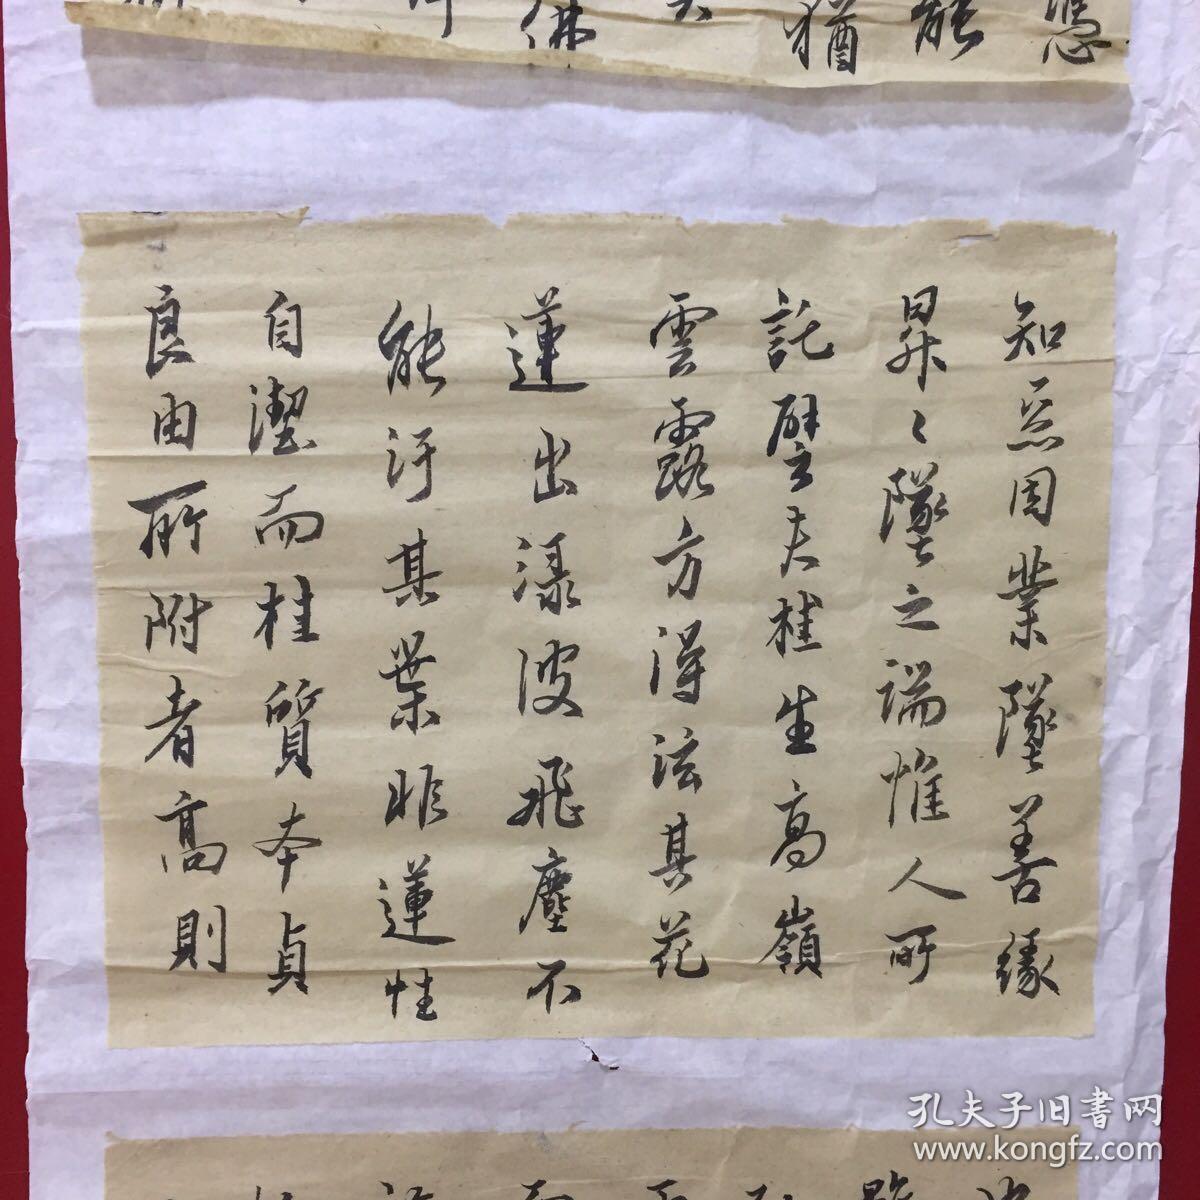 憑
能
猶
佛
知惡因業墜善緣
昇〻墜之端惟人所
託譬夫桂生高嶺
雲露方得泫其花
蓮出淥波飛塵不
能汙其葉非蓮性
自潔而桂質本貞
良由所附者高則
孔夫子旧書网
www.kongfz.com